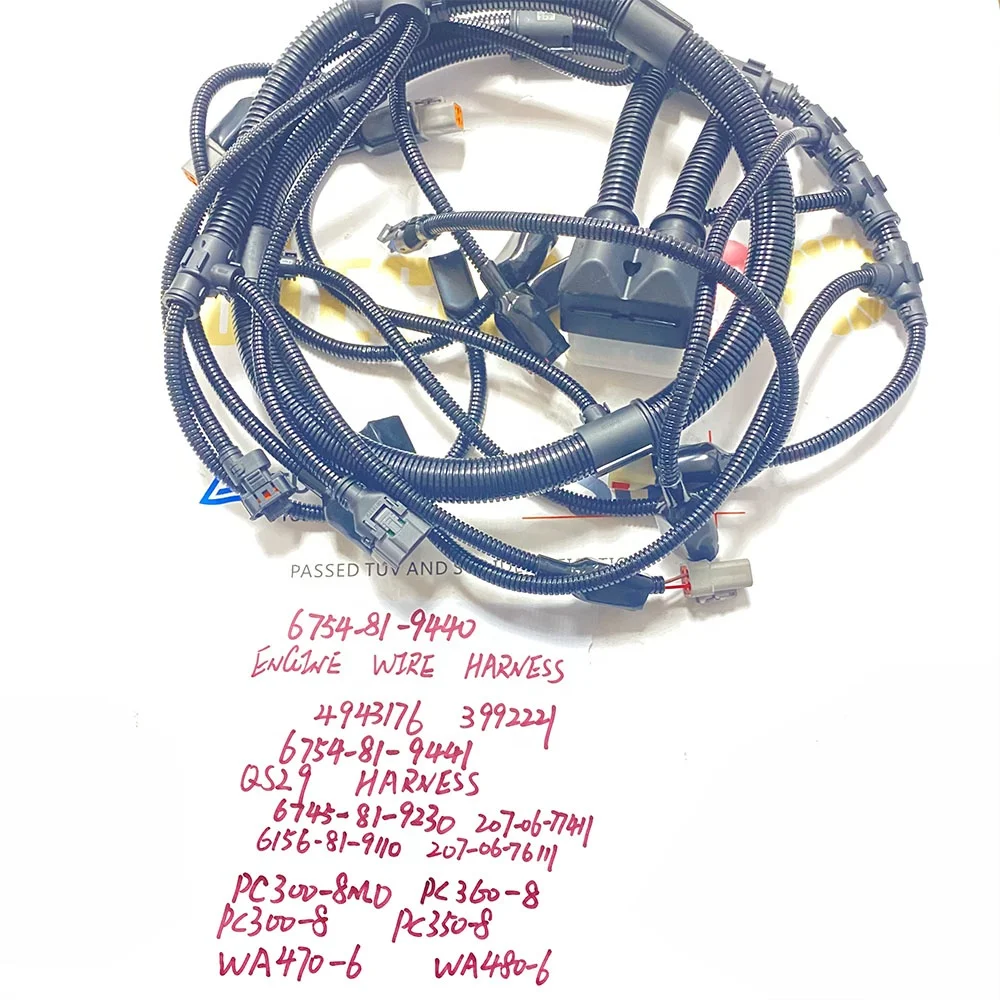 PASSED TÜV AND S
6754-81-9440
ENGINE WIRE HARNESS
4943176 3992221
6754-81-9441
QSL9 HARNESS
6745-81-9230 207-06-77411
6156-81-9110 207-06-76111
PC300-8MO PC360-8
PC300-8 PC350-8
WA470-6 WA480-6